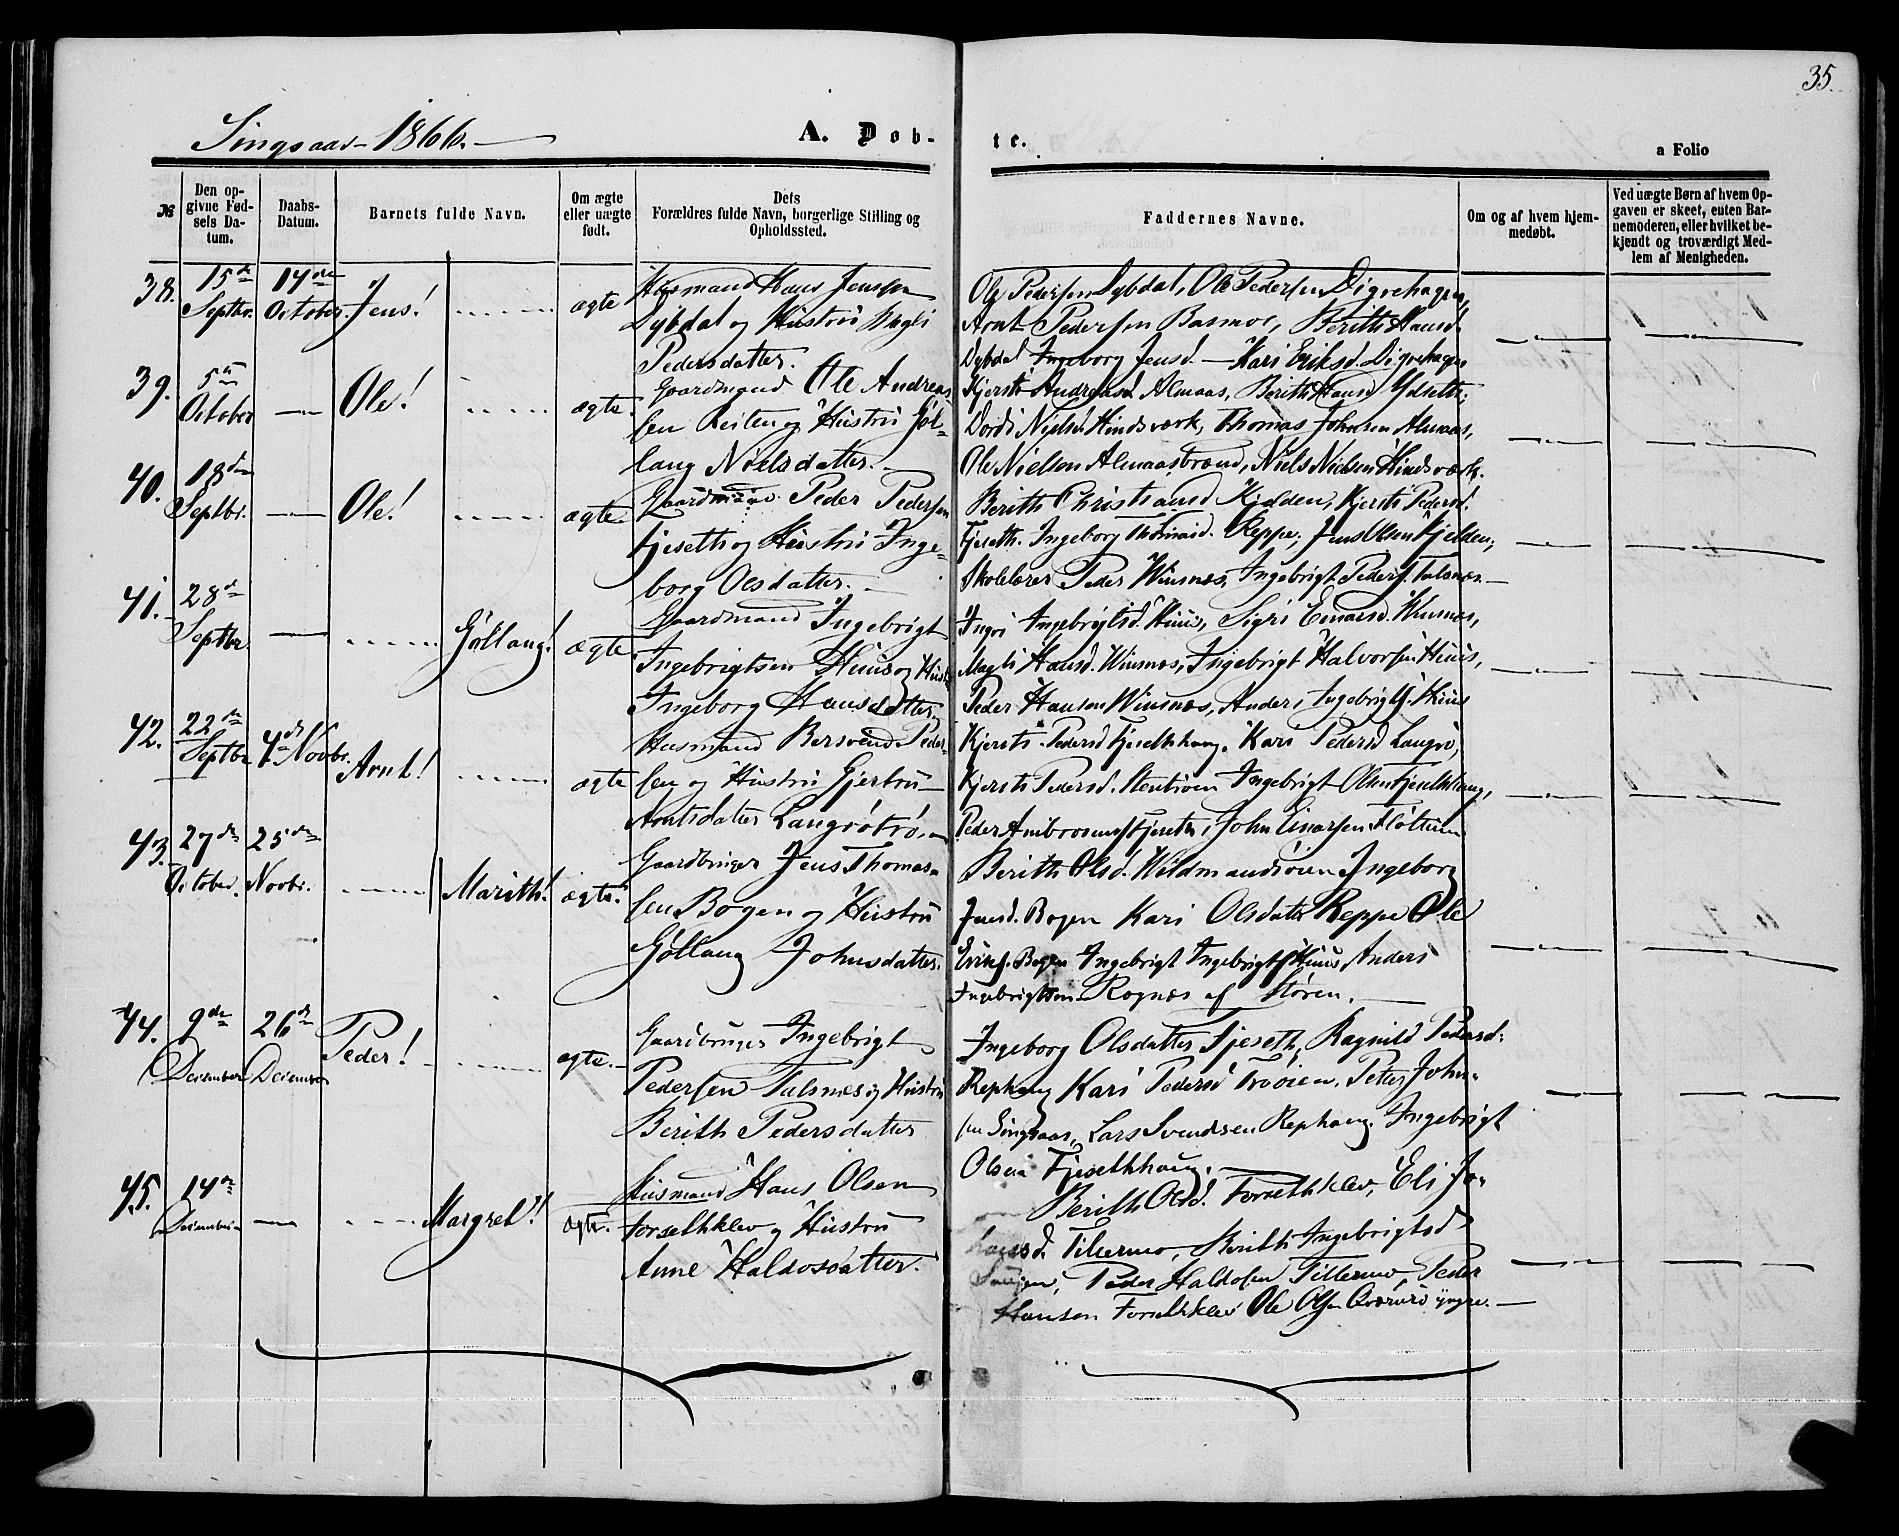 35.
Singsaas 1866.
A. Døb-
te.
a Folio
№
Den op-
givne Fød-
sels Da-
tum.
Daabs-
Datum.
Barnets fulde Navn.
Om ægte
eller uægte
født.
Dets
Forældres fulde Navn, borgerlige Stilling og
Opholdssted.
Faddernes Navne.
Om og af hvem hjem-
medøbt.
Ved uægte Børn af hvem Op-
gaven er skeet, enten Bar-
nemoderen, eller hvilket be-
kjendt og troværdigt Med-
lem af Menigheden.
38. 15de Septbr. 14de October Jens! ægte
Husmand Hans Jensen
Dybdal og Hustru
Pedersdatter.
Ole Pedersen Dybdal, Ole Pedersen Digrehagen,
Arnt Pedersen Basmoe, Berith Hansd.
Dybdal Ingeborg Jensd. — Kari Eriksd. Digrehagen
39. 5te October — Ole! ægte.
Gaardmand Ole Andreas
sen Reiten og Hustru Gøl-
laug Nielsdatter. —
Kjersti Andreasd. Almaas, Berith Hansd.
Dordi Nielsd. Hindsværk, Thomas Johnsen Almaas,
Ole Nielsen Almaasbrænd, Niels Nielsen Hindsværk.
40. 18de Septbr. — Ole! ægte.
Gaardmand Peder Pedersen
Fjeseth og Hustru Inge-
borg Olsdatter. —
Berith Christiansd. Kjelden, Kjersti Pedersd.
Fjeseth. Ingeborg Thomasd. Reppe, Jens Olsen Kjelden,
Skolelærer Peder Winsnes, Ingebrigt Peders. Talsnes. —
41. 28de Septbr. — Gøllaug! ægte
Gaardmand Ingebrigt
Ingebrigtsen Huus og Hustru
Ingeborg Hansdatter.
Ingri Ingebrigtsd. Huus, Sigri Einarsd. Winsnes,
Magli Hansd. Winsnes, Ingebrigt Halvorsen Huus,
Peder Hansen Winsnes, Anders Ingebrigts. Huus
42. 22de Septbr. 4de Novbr. Arnt! ægte
Husmand Bersvend Peder-
sen og Hustru Gjertru
Arntsdatter
Kjersti Pedersd. Fjesethhaug. Kari Pedersd. Langrø,
Kjersti Pedersd. Stenrøen Ingebrigt Olsen Fjesethhaug,
Peder Ambrosiuss. Fjeseth, John Einarsen Fløttum
43. 27de October. 25de Novbr. Marith! ægte.
Gaardbruger Jens Thomas-
sen Bogen og Hustru
Gøllaug Johnsdatter.
Berith Olsd. Wildmandsøien Ingeborg
Jensd. Bogen Kari Olsdatter Reppe Ole
Eriks. Bogen Ingebrigt Ingebrigts. Huus, Anders
Ingebrigtsen Rognes af Støren. —
44. 9de December 26de December Peder! ægte.
Gaardbruger Ingebrigt
Pedersen Talsnes og Hustru
Berith Pedersdatter
Ingeborg Olsdatter Fjeseth, Ragnild Pedersd.
Rephaug Kari Pedersd. Trøøien. Petter John-
sen Singsaas, Lars Svendsen Rephaug. Ingebrigt
Olsen Fjesethhaug.
45. 14de December — Margret! ægte.
Husmand Hans Olsen
Forsethklev og Hustru
Anne Haldosdatter.
Berith Olsd. Forsethklev, Eli Jo-
hansd. Tillermo, Berith Ingebrigtsd
Peder Haldosen Tillermo, Peder
Hansen Forsethklev Ole Olsen yngre. —